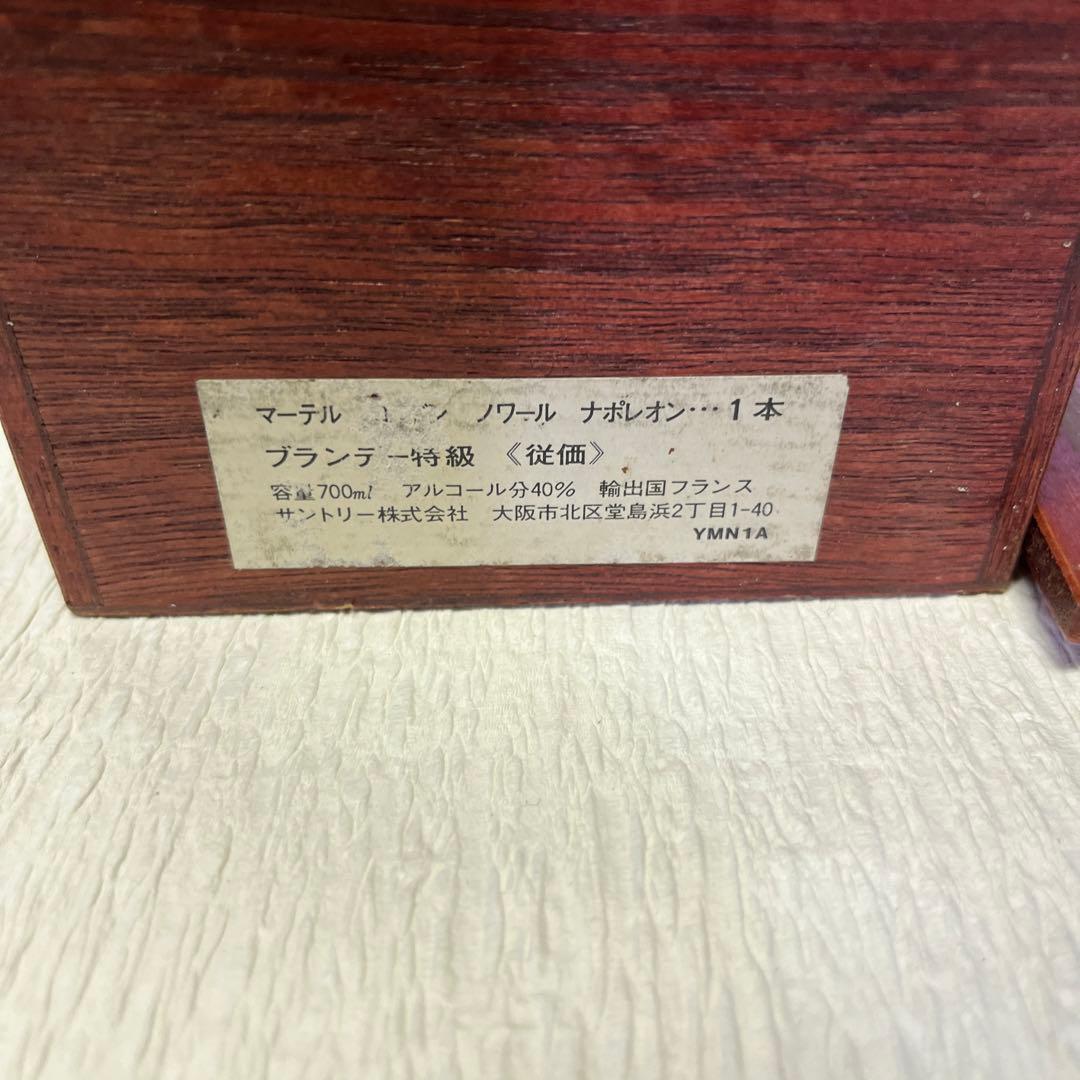 マーテル ノワール ナポレオン…1本
ブランデー特級 《従価》
容量700ml アルコール分40% 輸出国フランス
サントリー株式会社 大阪市北区堂島浜2丁目1-40
YMN1A